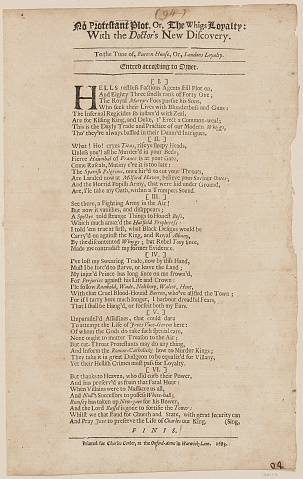 (94)
No Protestant Plot, Or, The Whigs Loyalty:
With the Doctor's New Discovery.
To the Tune of, Pacton House, Or, Londons Loyalty.
Entred according to Order.
[ I. ]
HELLS restless Factious Agents still Plot on,
And Eighty Three smells rank of Forty One;
The Royal Martyrs Foes pursue his Sons,
Who seek their Lives with Blunderbuss and Guns:
The Infernal Regicides so inflam'd with Zeal,
Are for Killing King, and Duke, t' Erect a Common-weal;
This is the Dayly Trade and Practice of our Modern Whiggs,
Tho' they're always baffled in their Damn'd Intrigues.
[ II. ]
What! Ho! cryes Titus, rise ye sleepy Heads,
Unless you'l all be Murder'd in your Beds;
Fierce Hannibal of France is at your Gate,
Come Rascals, Mutiny e're it is too late;
The Spanish Pilgrims, once hir'd to cut your Throats,
Are Landed now at Milford Haven, believe your Saviour Oates;
And the Horrid Popish Army, that were hid under Ground,
Are, I'le take my Oath, within a Trumpets Sound.
[ III. ]
See there, a Fighting Army in the Air!
But now it vanishes, and disappears;
A Spectre told strange Things to Honest Bess,
Which much amaz'd the Hatfield Prophetess:
I told 'em true at first, what Black Designs would be
Carry'd on against the King, and Royal Albany,
By the discontented Whiggs; but Rebel Tony since,
Made me contradict my former Evidence.
[ IV. ]
I've lost my Swearing Trade, now by this Hand,
Must I be forc'd to starve, or leave the Land;
My injur'd Prince has long since on me frown'd,
For Perjuries against his Life and Crown:
I'le follow Rumbold, Wade, Nelthrop, Walcot, Hone,
With that Cruel Blood-Hound Burton, who've all fled the Town;
For if I tarry here much longer, I harbour dreadful Fears,
That I shall be Hang'd, or for't lose both my Ears.
[ V. ]
Unparalel'd Assassines, that could dare
To attempt the Life of Joves Vice-Gerent here:
Of whom the Gods do take such special care,
None ought to mutter Treason to the Air;
But our Throat Protestants may do any thing,
And inform the Roman-Catholicks how to Murder Kings;
They take it in great Dudgeon to be equaliz'd for Villany,
Yet their Hellish Crimes must pass for Loyalty.
[ VI. ]
But thanks to Heaven, who did curb their Power,
And has preserv'd us from that Fatal Hour:
When Villains were to Massacre us all,
And Noll's Successors to possess White-hall;
Ramsey has taken up New-gate for his Bower,
And the Lord Russel is gone to fortifie the Tower:
Whilst we that stand for Church and State, with great security can
And Pray Jove to preserve the Life of Charles our King. (Sing,
FINIS.
Printed for Charles Corbet, at the Oxford-Arms in Warwick-Lane. 1683.
94